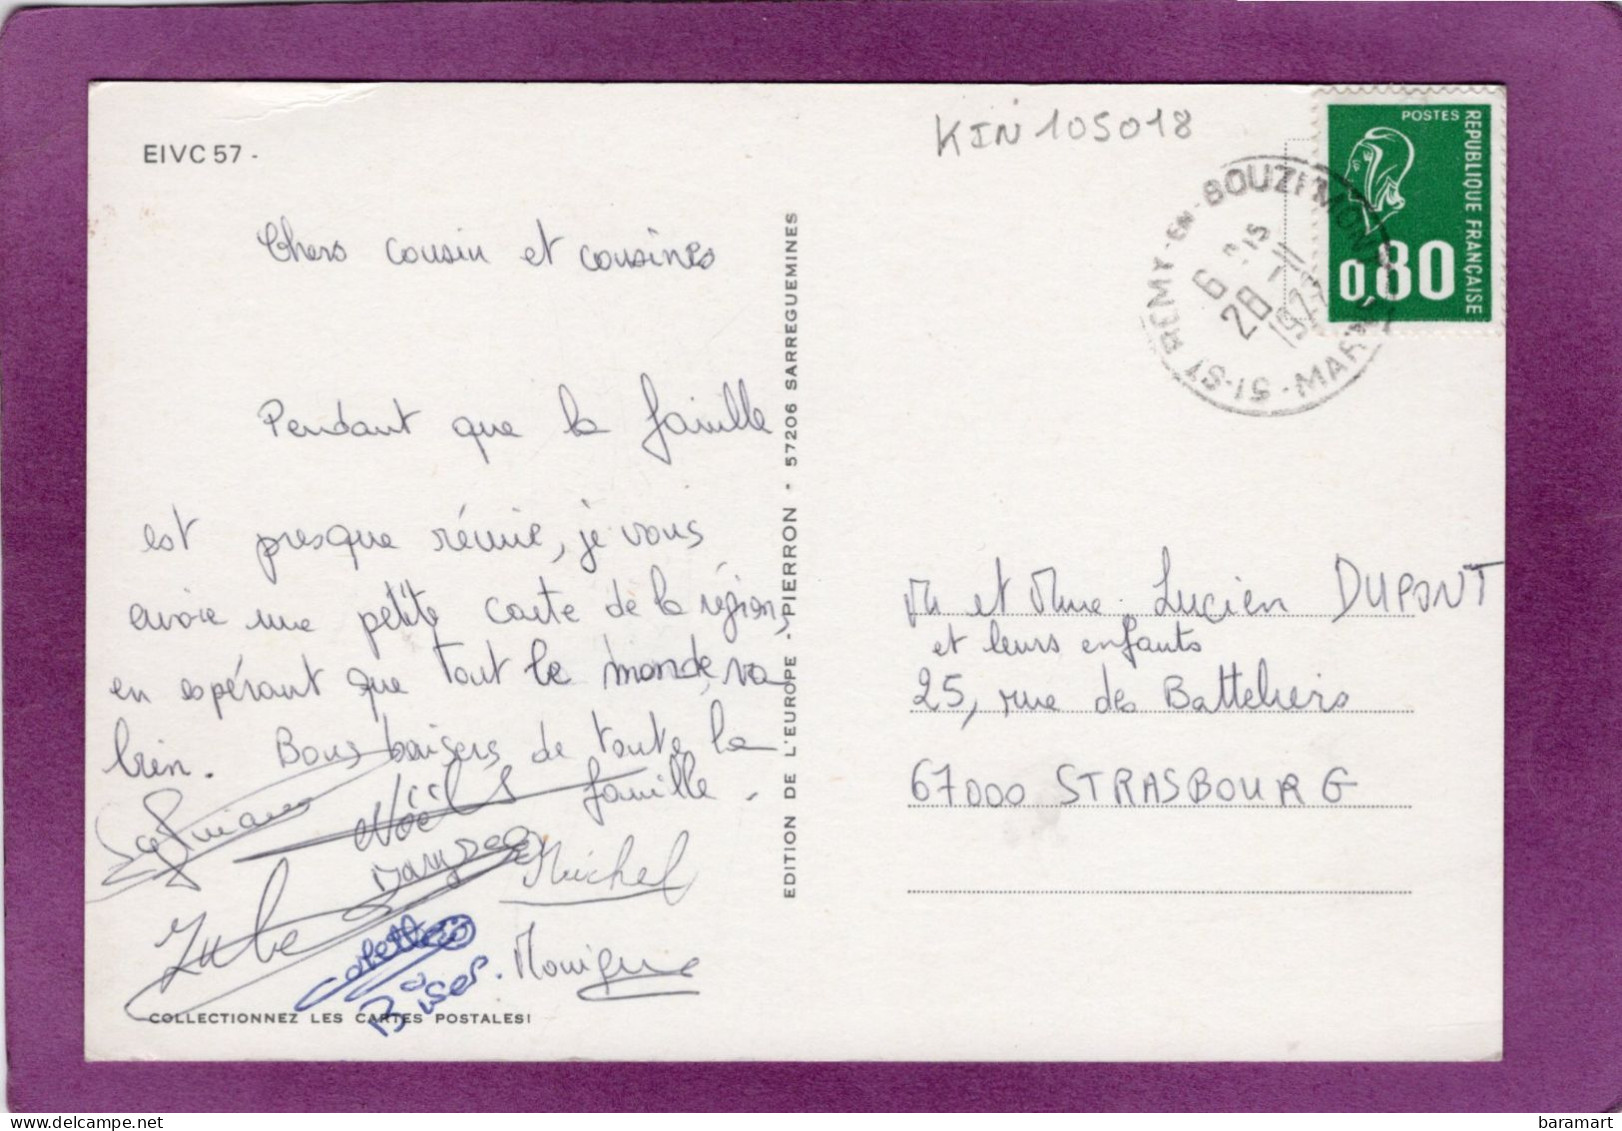 EIVC 57 -
KIN 105018
Chers cousin et cousines
Pendant que la famille
est presque réunie, je vous
envoie une petite carte de la région,
en espérant que tout le monde va
bien. Bons baisers de toute la
famille.
Noël
Michel
Colette
Monique
COLLECTIONNEZ LES CARTES POSTALES!
EDITION DE L'EUROPE - PIERRON - 57206 SARREGUEMINES
POSTES
REPUBLIQUE FRANÇAISE
0,80
ST REMY-EN-BOUZEMONT
51 - MARNE
28
Mr et Mme Lucien DUPONT
et leurs enfants
25, rue des Batteliers
67000 STRASBOURG
baramart